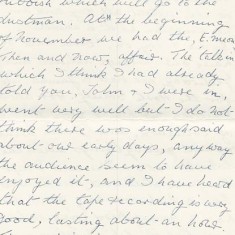 rubbish which will go to the
dustman. At the beginning
of November we had the, E.moor
Then and Now, affair. The 'talk in'
which I think I had already
told you, John & I were in,
went very well but I do not
think there was enough said
about our early days, anyway
the audience seem to have
enjoyed it, and I have heard
that the tape recording is very
good, lasting about an hour.